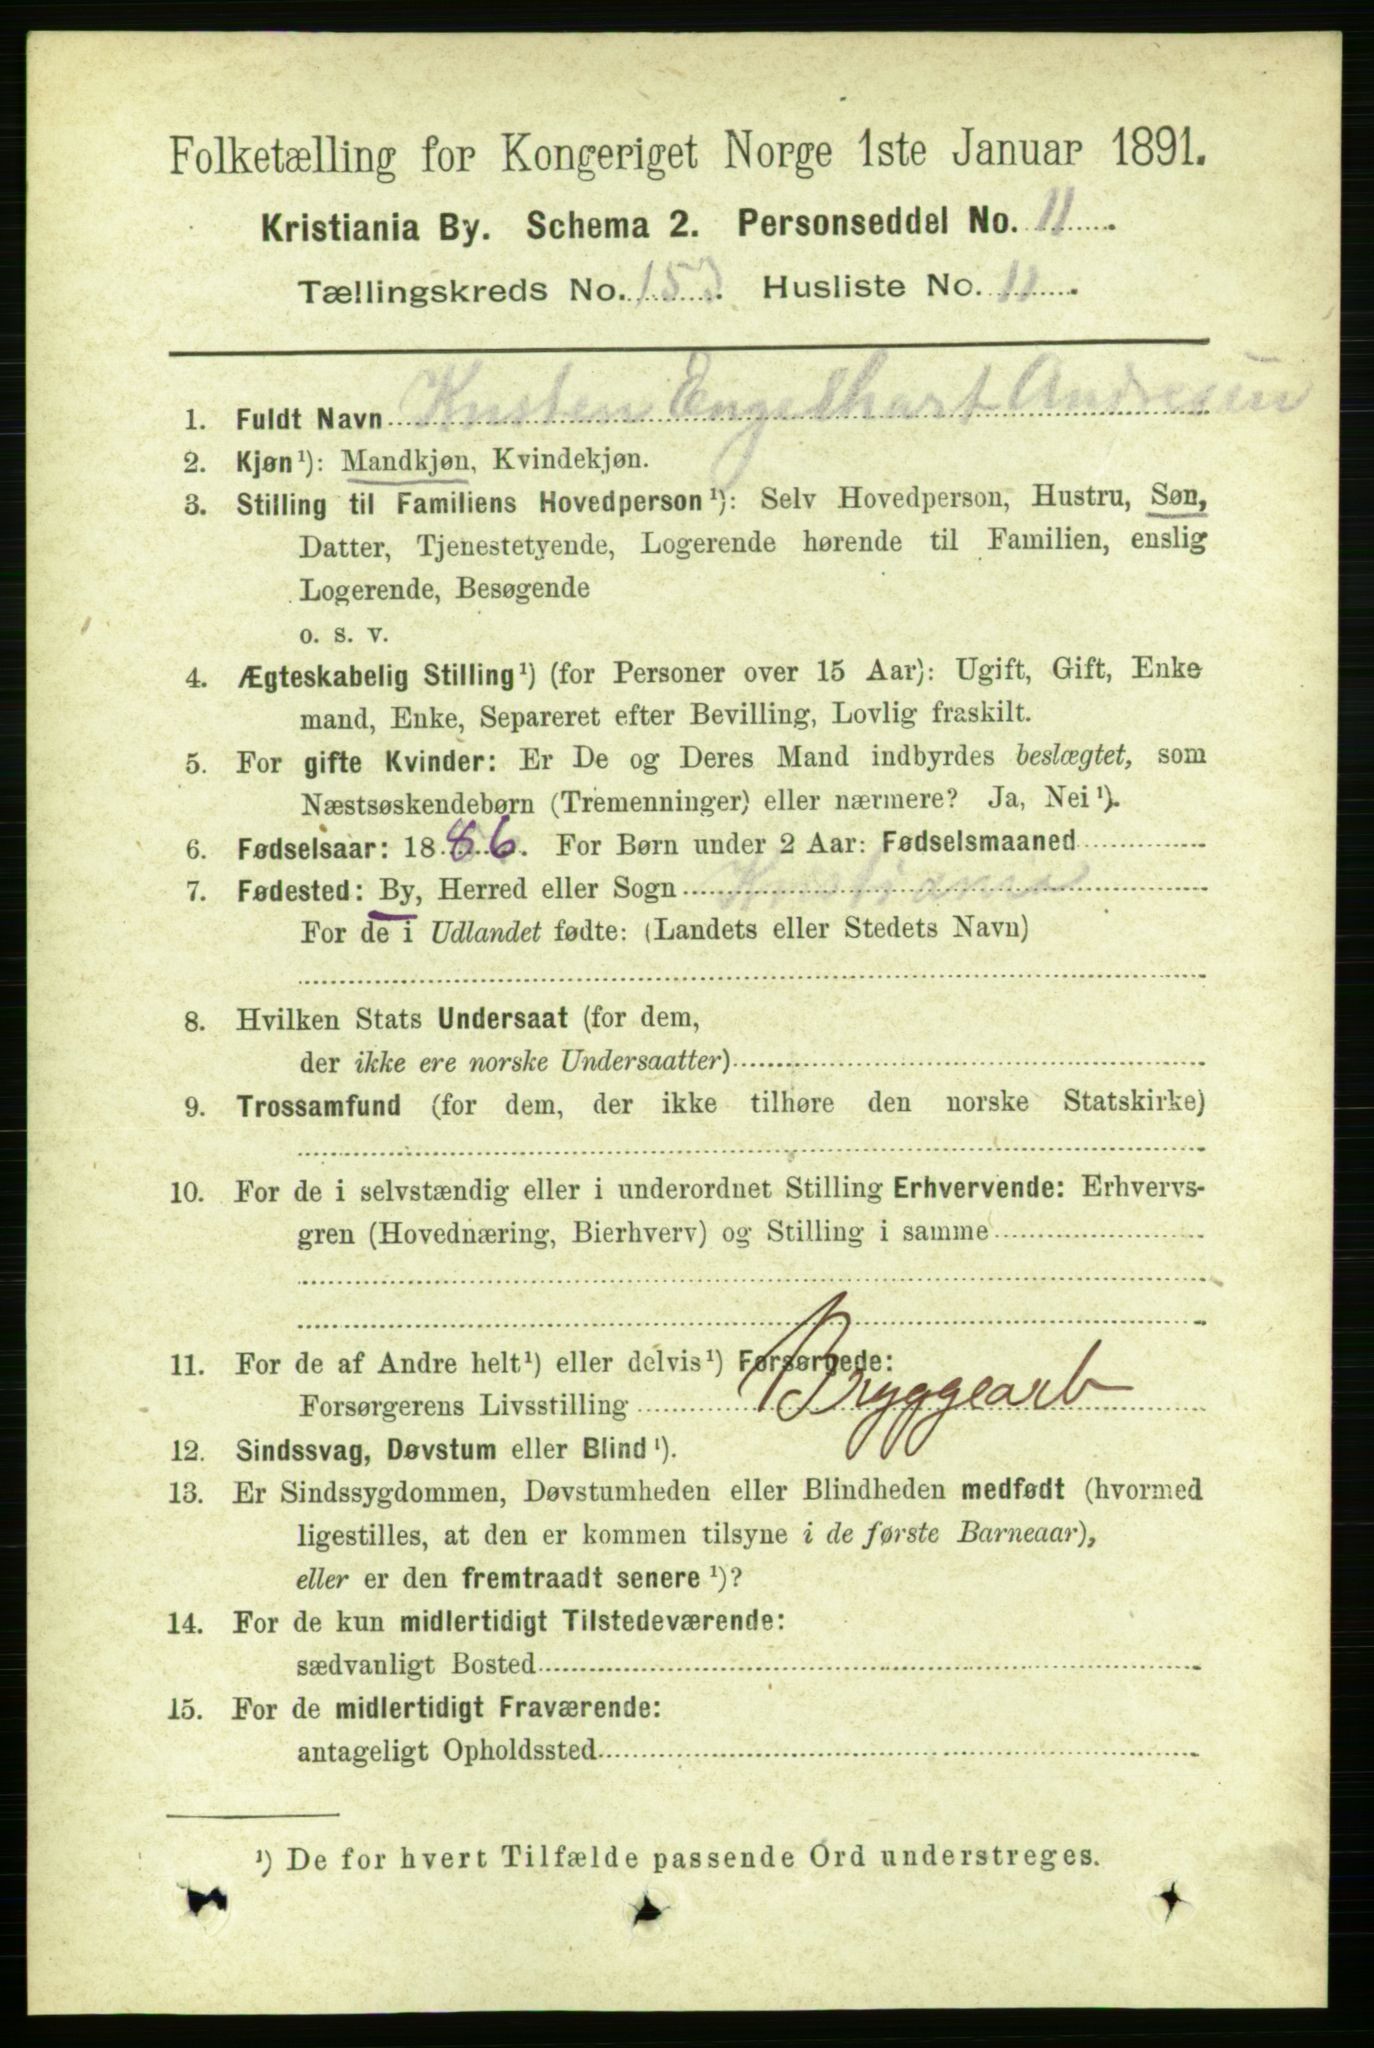 Folketælling for Kongeriget Norge 1ste Januar 1891.
Kristiania By. Schema 2. Personseddel No. 11
Tællingskreds No. 153. Husliste No. 11.
1. Fuldt Navn Kristen Engelhart Andresen
2. Kjøn¹): Mandkjøn, Kvindekjøn.
3. Stilling til Familiens Hovedperson¹): Selv Hovedperson, Hustru, Søn,
Datter, Tjenestetyende, Logerende hørende til Familien, enslig
Logerende, Besøgende
o. s. v.
4. Ægteskabelig Stilling¹) (for Personer over 15 Aar): Ugift, Gift, Enke
mand, Enke, Separeret efter Bevilling, Lovlig fraskilt.
5. For gifte Kvinder: Er De og Deres Mand indbyrdes beslægtet, som
Næstsøskendebørn (Tremenninger) eller nærmere? Ja, Nei¹).
6. Fødselsaar: 1886. For Børn under 2 Aar: Fødselsmaaned
7. Fødested: By, Herred eller Sogn Kristiania
For de i Udlandet fødte: (Landets eller Stedets Navn)
8. Hvilken Stats Undersaat (for dem,
der ikke ere norske Undersaatter)
9. Trossamfund (for dem, der ikke tilhøre den norske Statskirke)
10. For de i selvstændig eller i underordnet Stilling Erhvervende: Erhvervs-
gren (Hovednæring, Bierhverv) og Stilling i samme
11. For de af Andre helt¹) eller delvis¹) Forsørgede:
Forsørgerens Livsstilling Bryggearb
12. Sindssvag, Døvstum eller Blind¹).
13. Er Sindssygdommen, Døvstumheden eller Blindheden medfødt (hvormed
ligestilles, at den er kommen tilsyne i de første Barneaar),
eller er den fremtraadt senere¹)?
14. For de kun midlertidigt Tilstedeværende:
sædvanligt Bosted
15. For de midlertidigt Fraværende:
antageligt Opholdssted
¹) De for hvert Tilfælde passende Ord understreges.